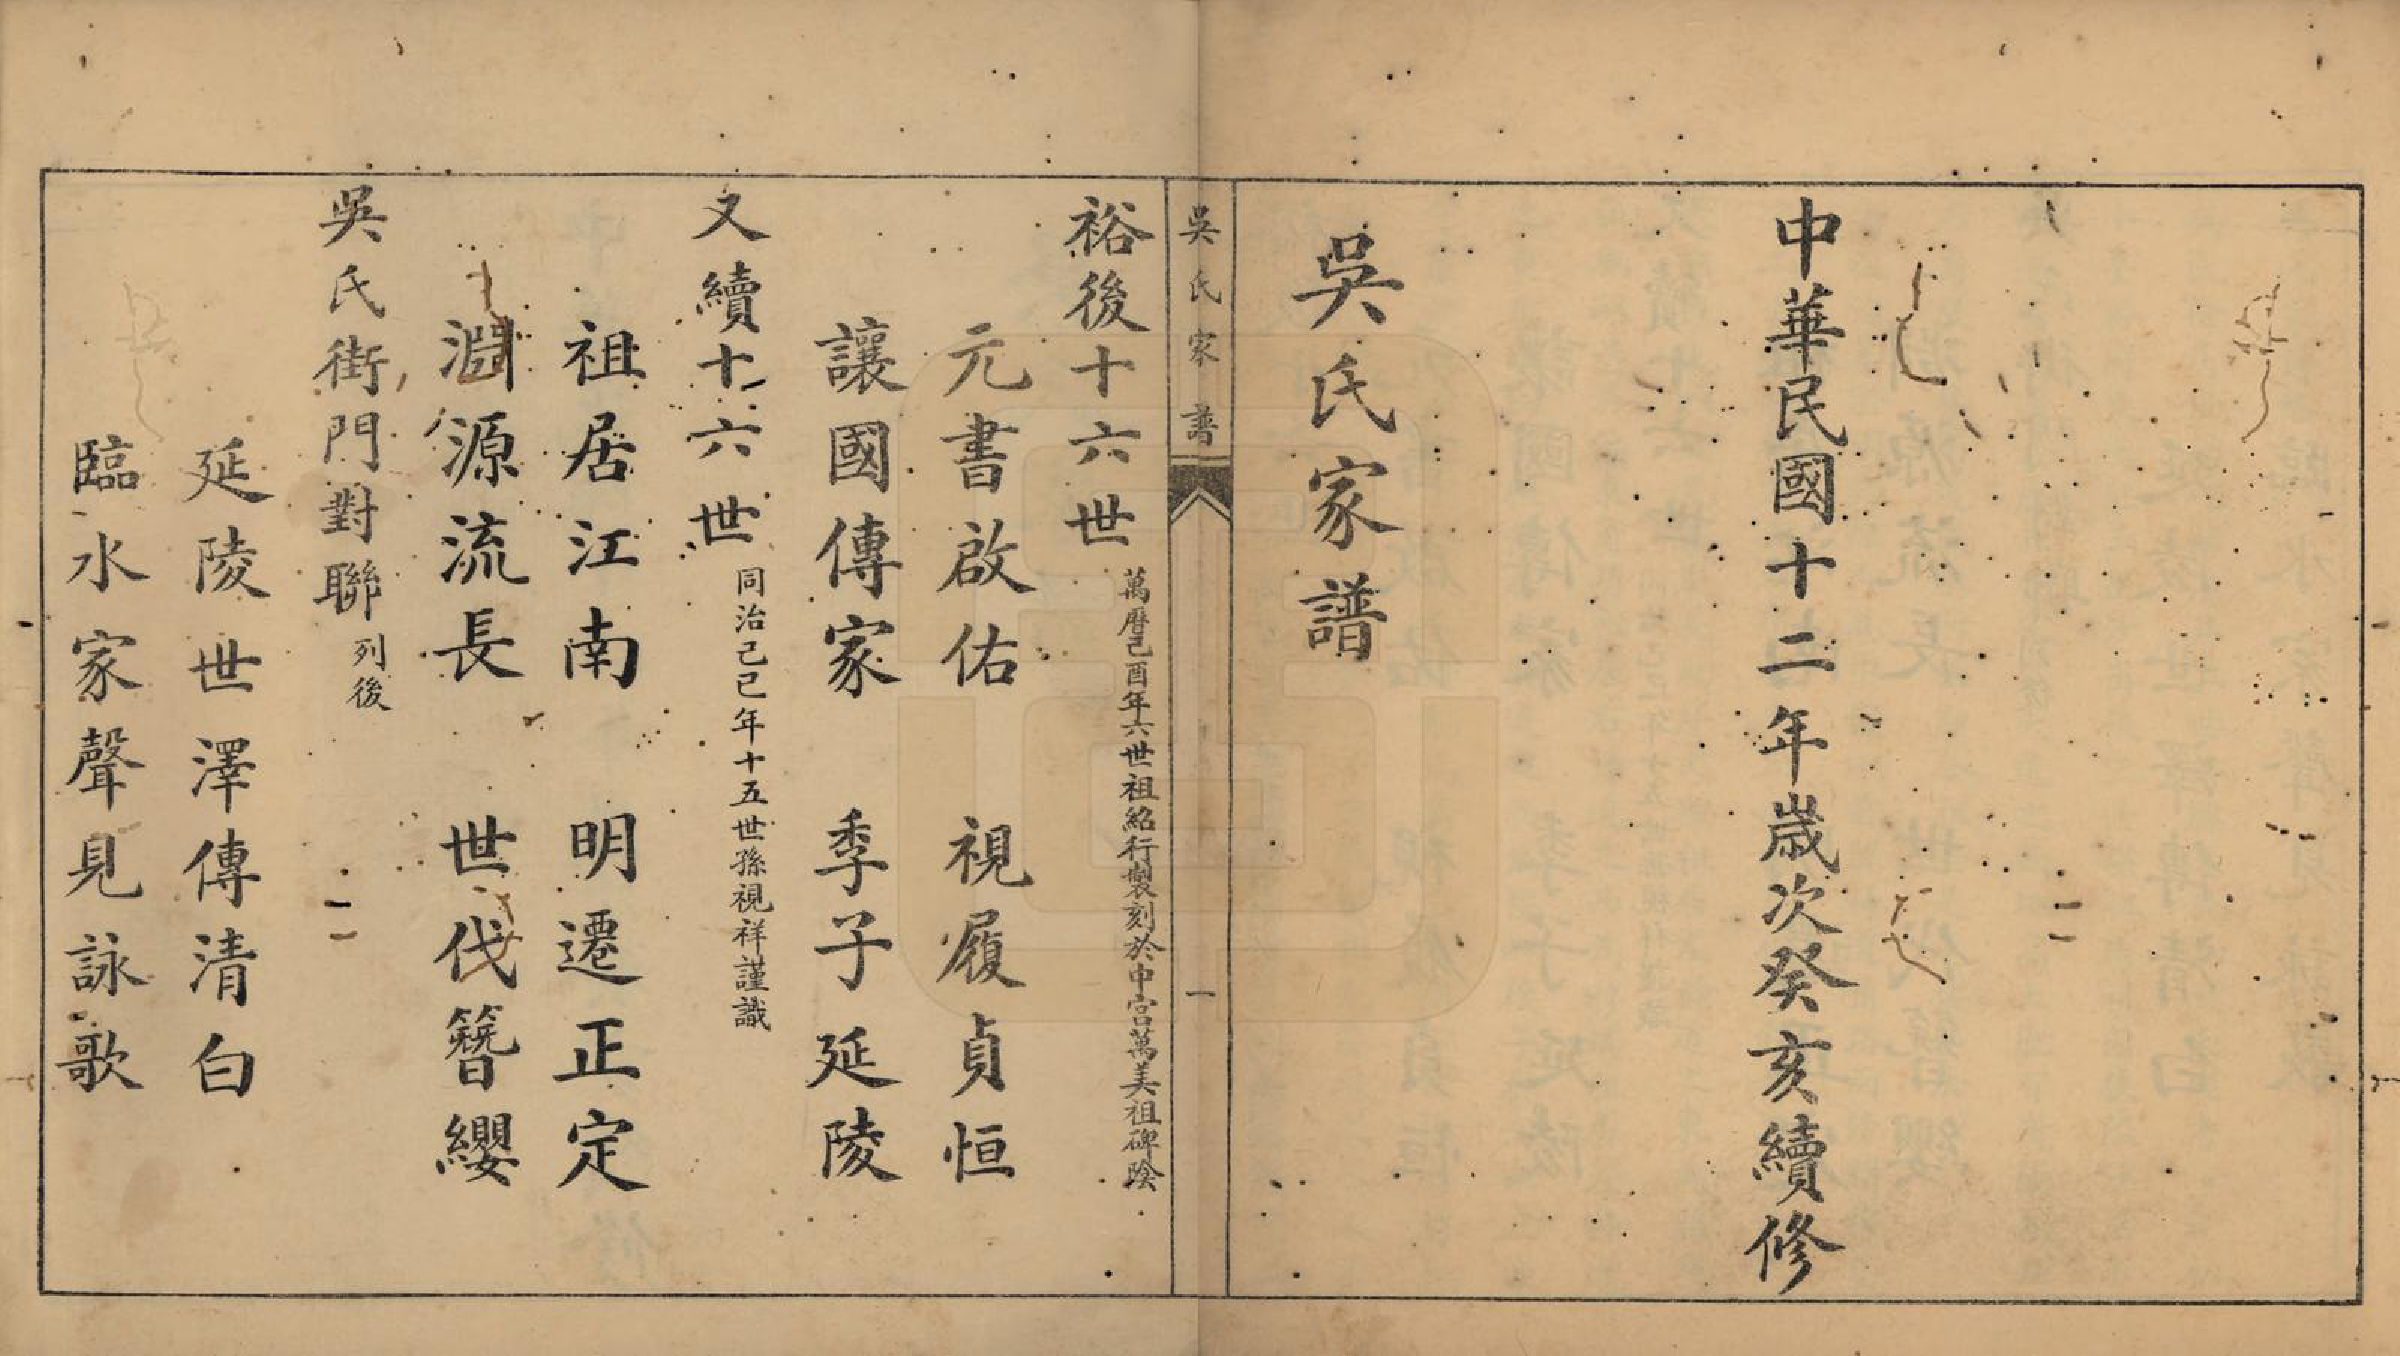 中華民國十二年歲次癸亥續修
吳氏家譜
吳氏家譜
一
裕後十六世 萬曆己酉年六世祖紹行製刻於中宮萬美祖碑陰
元書啟佑 視履貞恒
讓國傳家 季子延陵
又續十六世 同治己巳年十五世孫視祥謹識
祖居江南 明遷正定
淵源流長 世代簪纓
吳氏街門對聯 列後
延陵世澤傳清白
臨水家聲見詠歌